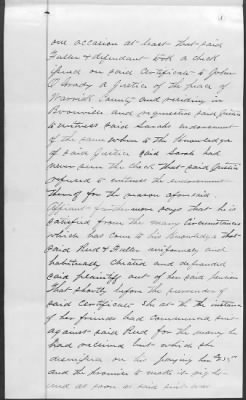 one occasion at least that said
Fuller & defendant took a check
given on said Certificate to John
C Grady a Justice of the peace of
Warrick County and residing in
Boonville and requested said Justice
to witness said Sarahs endorsement
of the same when to the Knowledge
of said Justice said Sarah had
never seen the check that said Justice
refused to witness the endorsement
thereof for the reason aforesaid
Affiant further more says that he is
satisfied from the many Circumstances
which has come to his Knowledge that
said Reed & Fuller uniformly and
habitually cheated and defrauded
said plaintiff out of her said pension
that shortly before the surrender of
said Certificate She at the instance
of her friends had commenced suit
against said Reed for the money he
had received but which she
dismissed on his paying her $35
and the promise to make it right
and as soon as said suit was